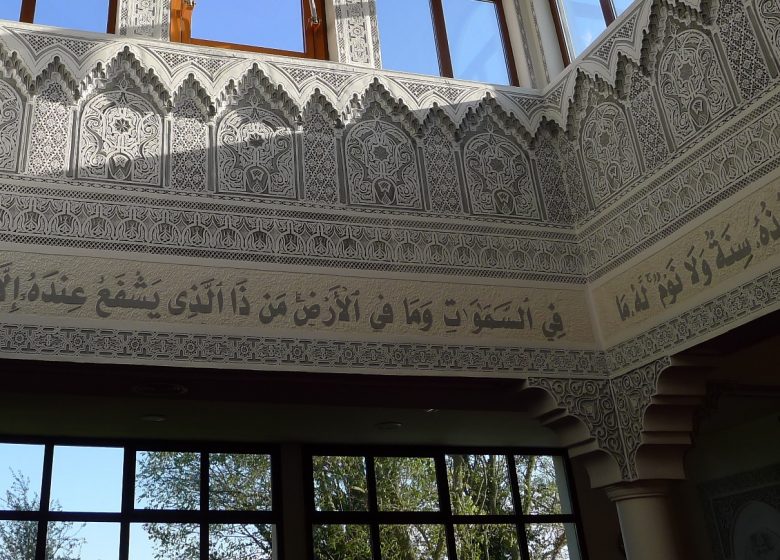 ـذُهُۥ سِنَةٌ وَلَا نَوْمٌ ۚ لَّهُۥ مَا فِي ٱلسَّمَٰوَٰتِ وَمَا فِي ٱلْأَرْضِ ۗ مَن ذَا ٱلَّذِى يَشْفَعُ عِندَهُۥٓ إِلَّا